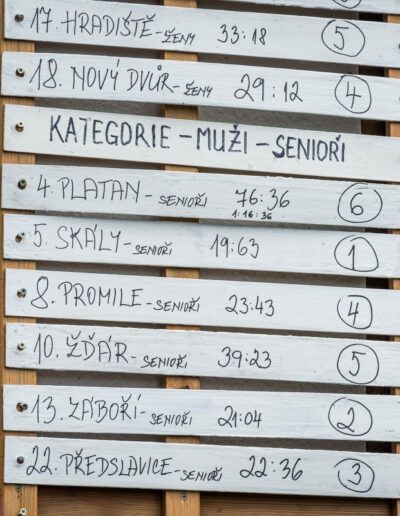 17. HRADIŠTĚ-ŽENY 33:18 5
18. NOVÝ DVŮR-ŽENY 29:12 4
KATEGORIE - MUŽI - SENIOŘI
4. PLATAN - SENIOŘI 76:36 6
1:16:36
5. SKÁLY - SENIOŘI 19:63 1
8. PROMILE - SENIOŘI 23:43 4
10. ŽĎÁR - SENIOŘI 39:23 5
13. ZÁBOŘÍ - SENIOŘI 21:04 2
22. PŘEDSLAVICE - SENIOŘI 22:36 3